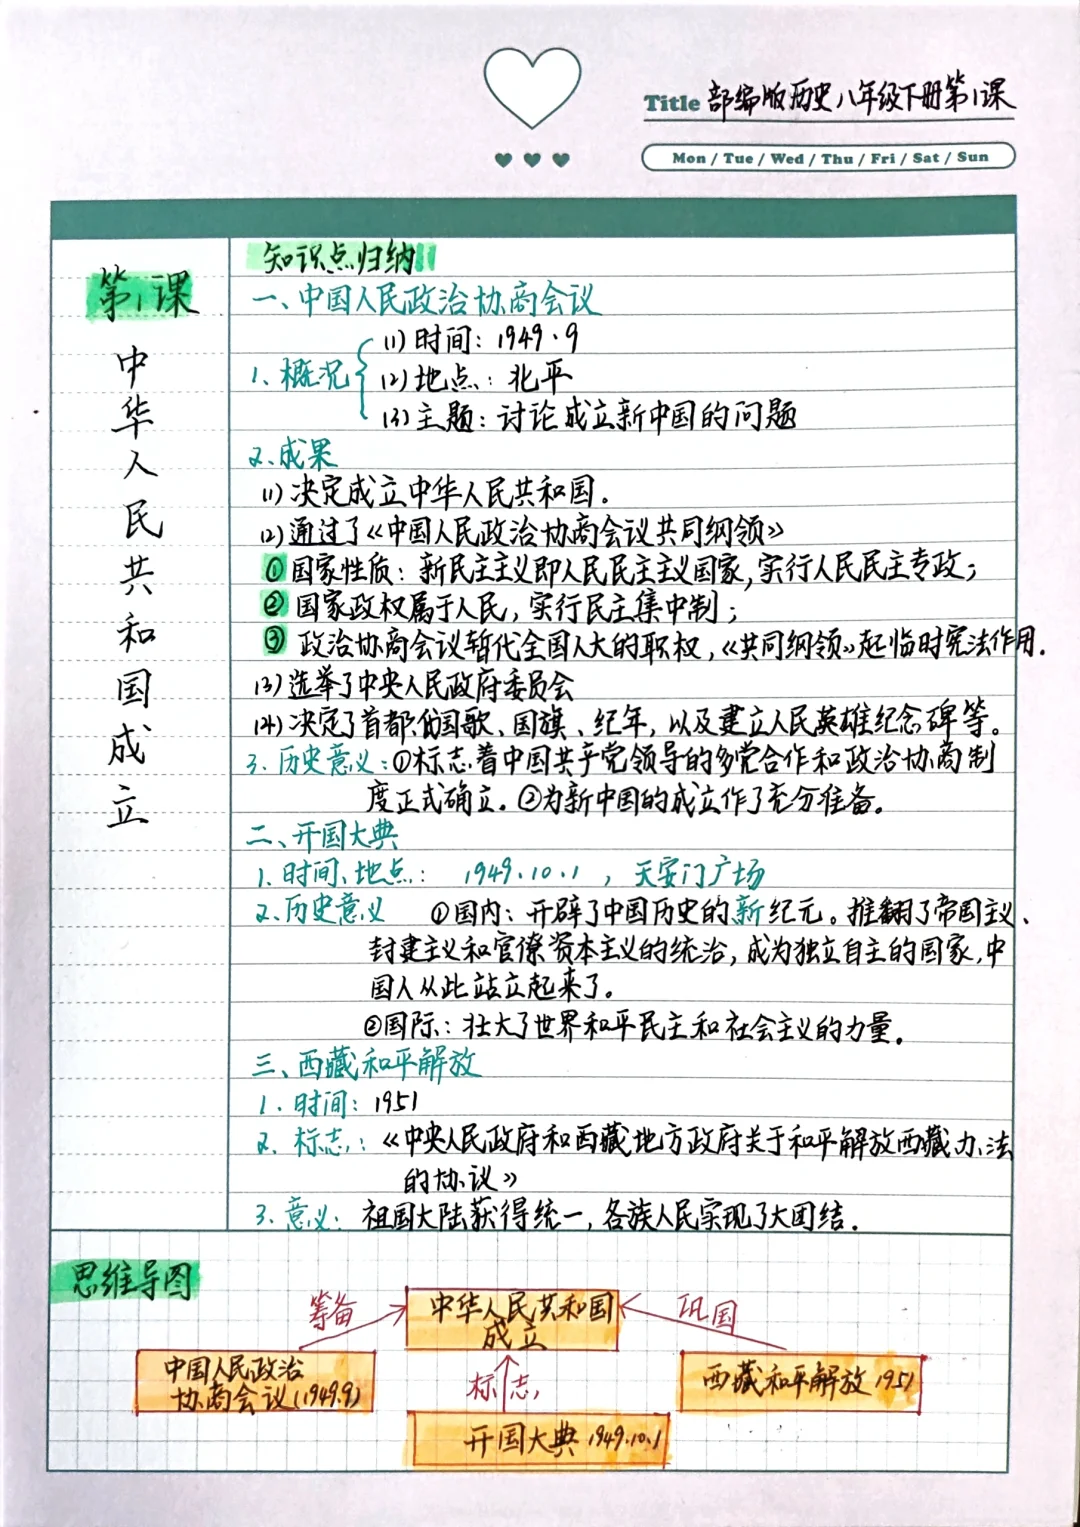 Title 部编版历史八年级下册第1课
Mon / Tue / Wed / Thu / Fri / Sat / Sun
第1课
中华人民共和国成立
知识点归纳
一、中国人民政治协商会议
1、概况
(1)时间：1949.9
(2)地点：北平
(3)主题：讨论成立新中国的问题
2.成果
(1)决定成立中华人民共和国.
(2)通过了《中国人民政治协商会议共同纲领》
①国家性质：新民主主义即人民民主主义国家,实行人民民主专政;
②国家政权属于人民,实行民主集中制;
③政治协商会议暂代全国人大的职权,《共同纲领》起临时宪法作用.
(3)选举了中央人民政府委员会
(4)决定了首都、国歌、国旗、纪年,以及建立人民英雄纪念碑等。
3.历史意义:①标志着中国共产党领导的多党合作和政治协商制
度正式确立.②为新中国的成立作了充分准备。
二、开国大典
1.时间、地点： 1949.10.1 , 天安门广场
2.历史意义 ①国内：开辟了中国历史的新纪元。推翻了帝国主义、
封建主义和官僚资本主义的统治,成为独立自主的国家,中
国人从此站立起来了。
②国际：壮大了世界和平民主和社会主义的力量。
三、西藏和平解放
1.时间：1951
2.标志：《中央人民政府和西藏地方政府关于和平解放西藏办法
的协议》
3.意义：祖国大陆获得统一,各族人民实现了大团结.
思维导图
筹备
中华人民共和国
成立
巩固
中国人民政治
协商会议(1949.9)
标志
西藏和平解放 1951
开国大典 1949.10.1